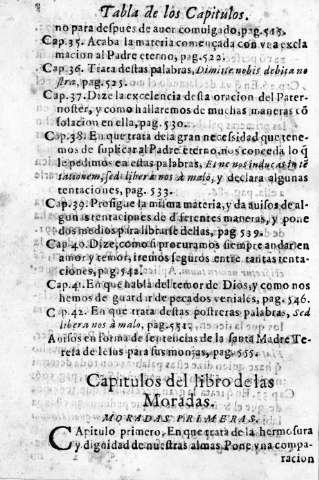 Tabla de los Capitulos.
no para despues de auer comulgado, pag. 513.
Cap. 35. Acaba la materia començada con vna excla
macion al Padre eterno, pag. 522.
Cap. 36. Trata destas palabras, Dimitte nobis debita no
stra, pag. 525.
Cap. 37. Dize la excelencia desta oracion del Pater-
noster, y como hallaremos de muchas maneras cō
solacion en ella, pag. 530.
Cap. 38. En que trata de la gran necessidad que tene-
mos de suplicar al Padre eterno, nos conceda lo q̄
le pedimos en estas palabras, Et ne nos inducas in tē
tationem, sed libera nos à malo, y declara algunas
tentaciones, pag. 533.
Cap. 39. Prosigue la misma materia, y da auisos de al-
gunas tentaciones de diferentes maneras, y pone
dos medios para librarse dellas, pag 539.
Cap. 40. Dize, como si procuramos siempre andar en
amor y temor, iremos seguros entre tantas tenta-
ciones, pag. 542.
Cap. 41. En que habla del temor de Dios, y como nos
hemos de guardar de pecados veniales, pag. 546.
Cap. 42. En que trata destas postreras palabras, Sed
libera nos à malo, pag. 551.
Auisos en forma de sentencias de la santa Madre Te-
resa de Iesus para sus monjas, pag. 555.
Capitulos del libro de las
Moradas.
MORADAS PRIMERAS.
CApitulo primero, En que trata de la hermosura
y dignidad de nuestras almas. Pone vna compa-
racion